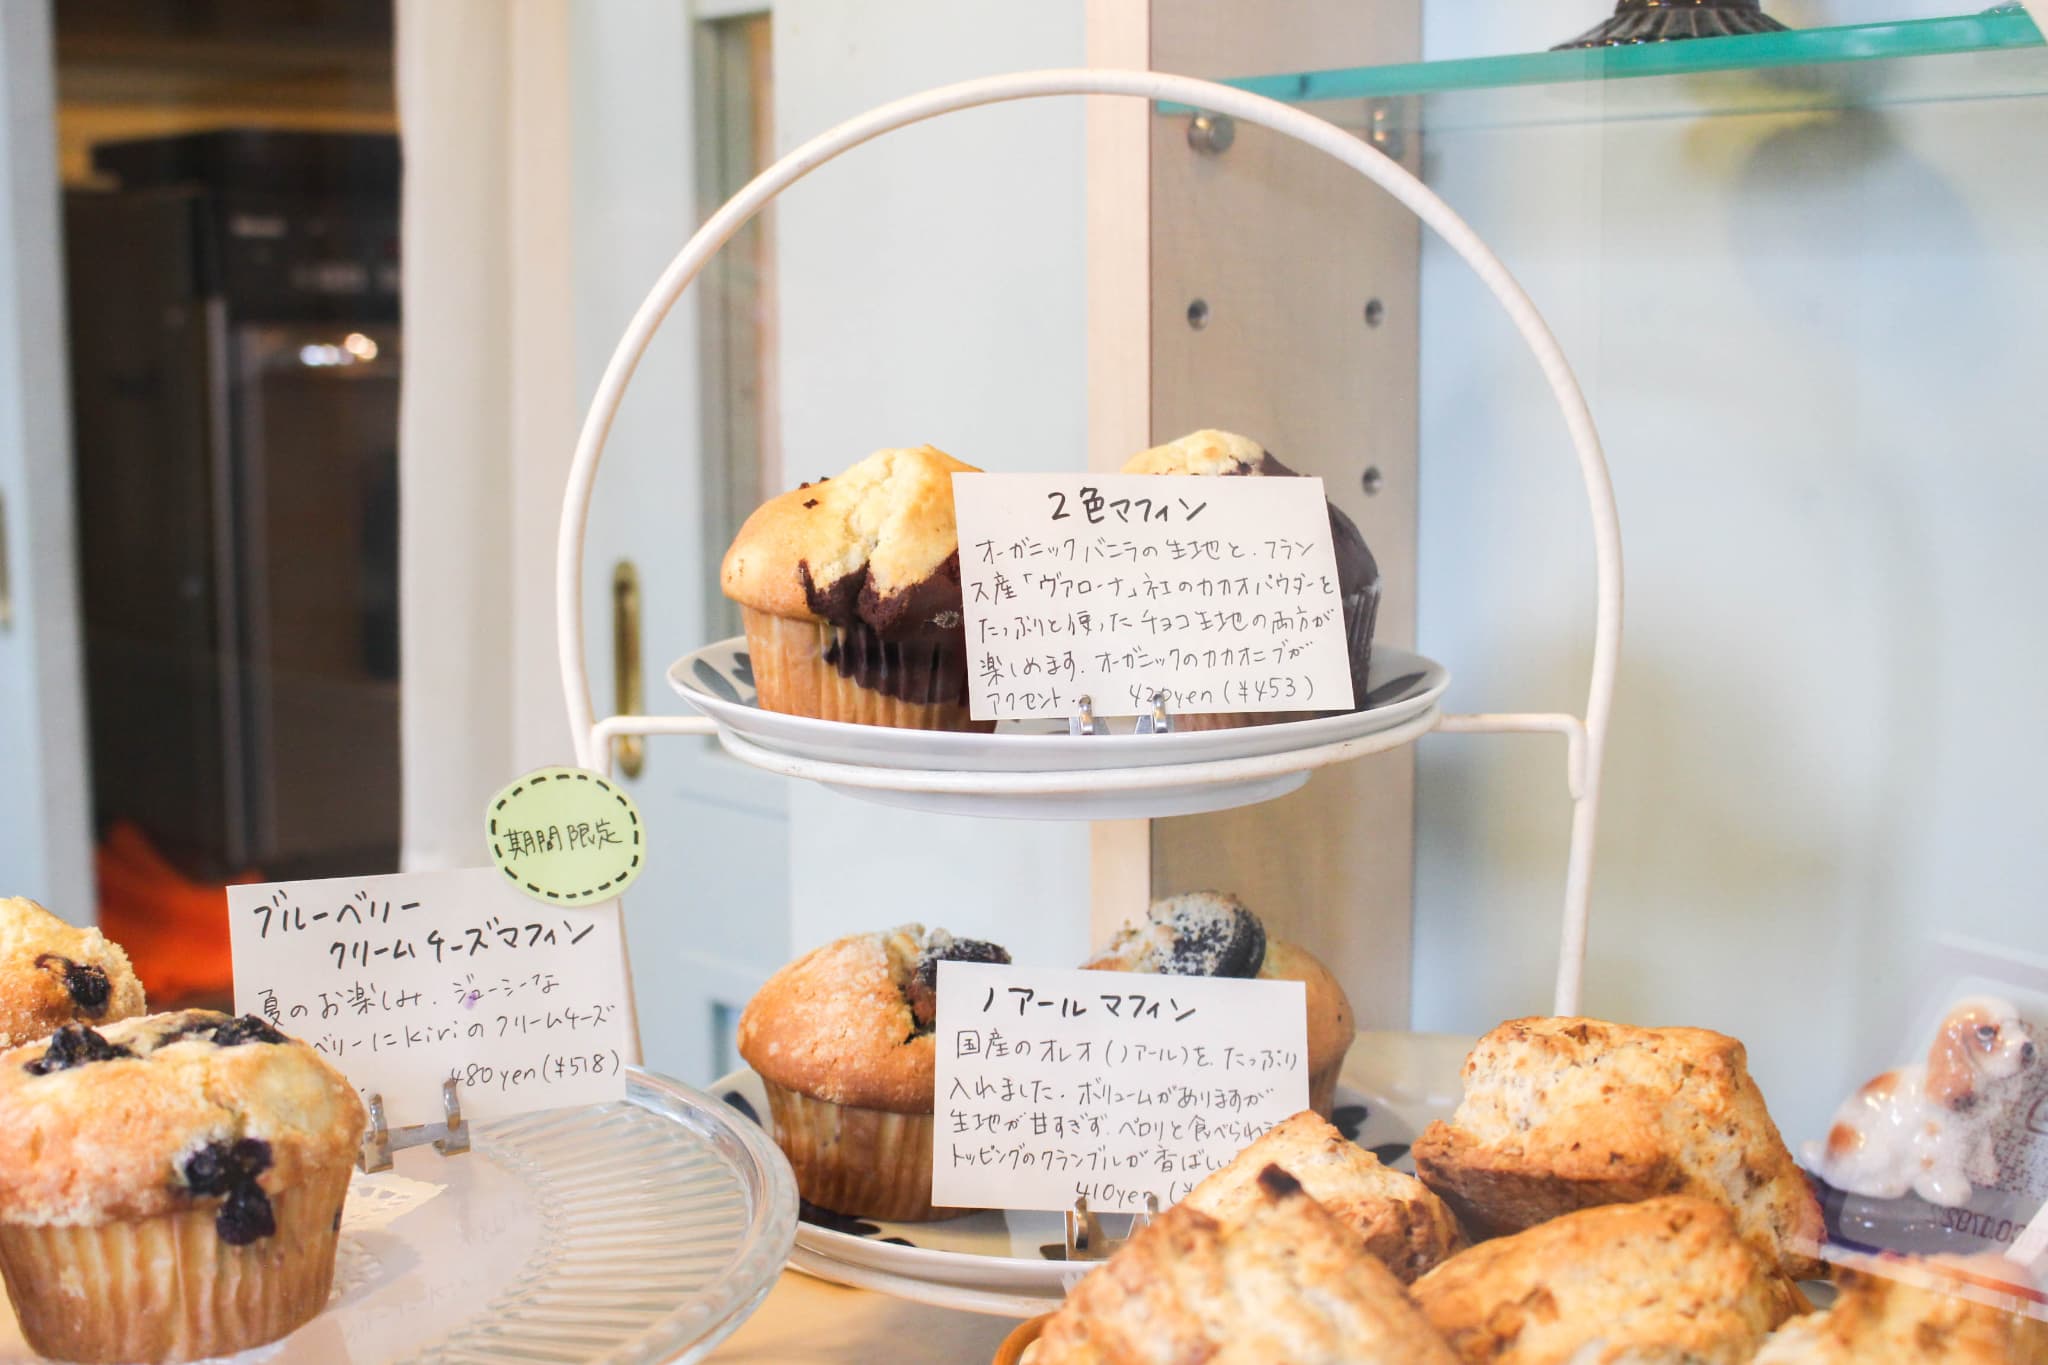 2色マフィン
オーガニックバニラの生地と、フラン
ス産「ヴァローナ」社のカカオパウダーを
たっぷりと使ったチョコ生地の両方が
楽しめます。オーガニックのカカオニブが
アクセント。 420yen(¥453)
期間限定
ブルーベリー
クリームチーズマフィン
夏のお楽しみ。ジューシーな
ベリーにkiriのクリームチーズ
480yen(¥518)
ノアールマフィン
国産のオレオ(ノアール)を、たっぷり
入れました。ボリュームがありますが
生地が甘すぎず、ペロリと食べられ
トッピングのクランブルが香ばしい
410yen(¥